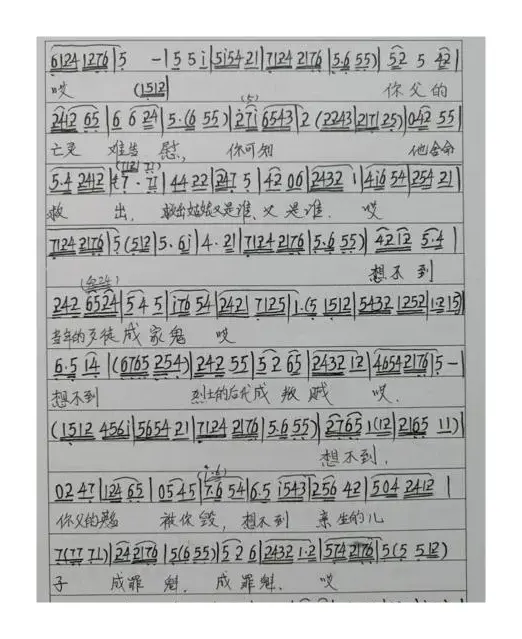 6124 1276 | 5 - | 5 5 i | 5i54 21 | 7124 2176 | 5.6 55) | 52 5 42 |
哎 (1512) 你父的
2412 65 | 6 6 24 | 5.(6 55) | 27i 6543 | 2 (2243 | 217 25) | 042 55 |
亡灵 难告慰, 你可知 他舍命
5.4 2412 | 7. 71 | 44 22 | 247 5 | 42 06 | 2432 1 | 4i6 54 | 254 21 |
救 出, 救出姑娘又是谁、又 是 谁. 哎
7124 2176 | 5 (512 | 5.6i | 4.21 | 7124 2176 | 5.6 55) | 42 12 5.4 |
想 不 到
242 6524 | 5 4 5 | i76 54 | 242 7125 | 1.(5 1512 | 5432 1252 | 1.2 15)
当年的歹徒成家鬼 哎
6.5 i4 | (6765 254) | 242 55 | 5 2 65 | 2432 12 | 4654 2176 | 5 -
想不到 烈士的后代成 叛 贼 哎.
(1512 456i | 5654 21 | 7124 2176 | 5.6 55) | 2765 1(12 | 2165 11)
想不到,
02 47 | 124 65 | 05 45 | 7.6 54 | 6.5 i543 | 256 42 | 504 2412 |
你父的 被你毁, 想不到 亲生的儿
7(77 71) | 24 2176 | 5(6 55) | 5 2 6 | 2432 1.2 | 574 2176 | 5(5 512)
子 成罪 魁, 成罪魁. 哎